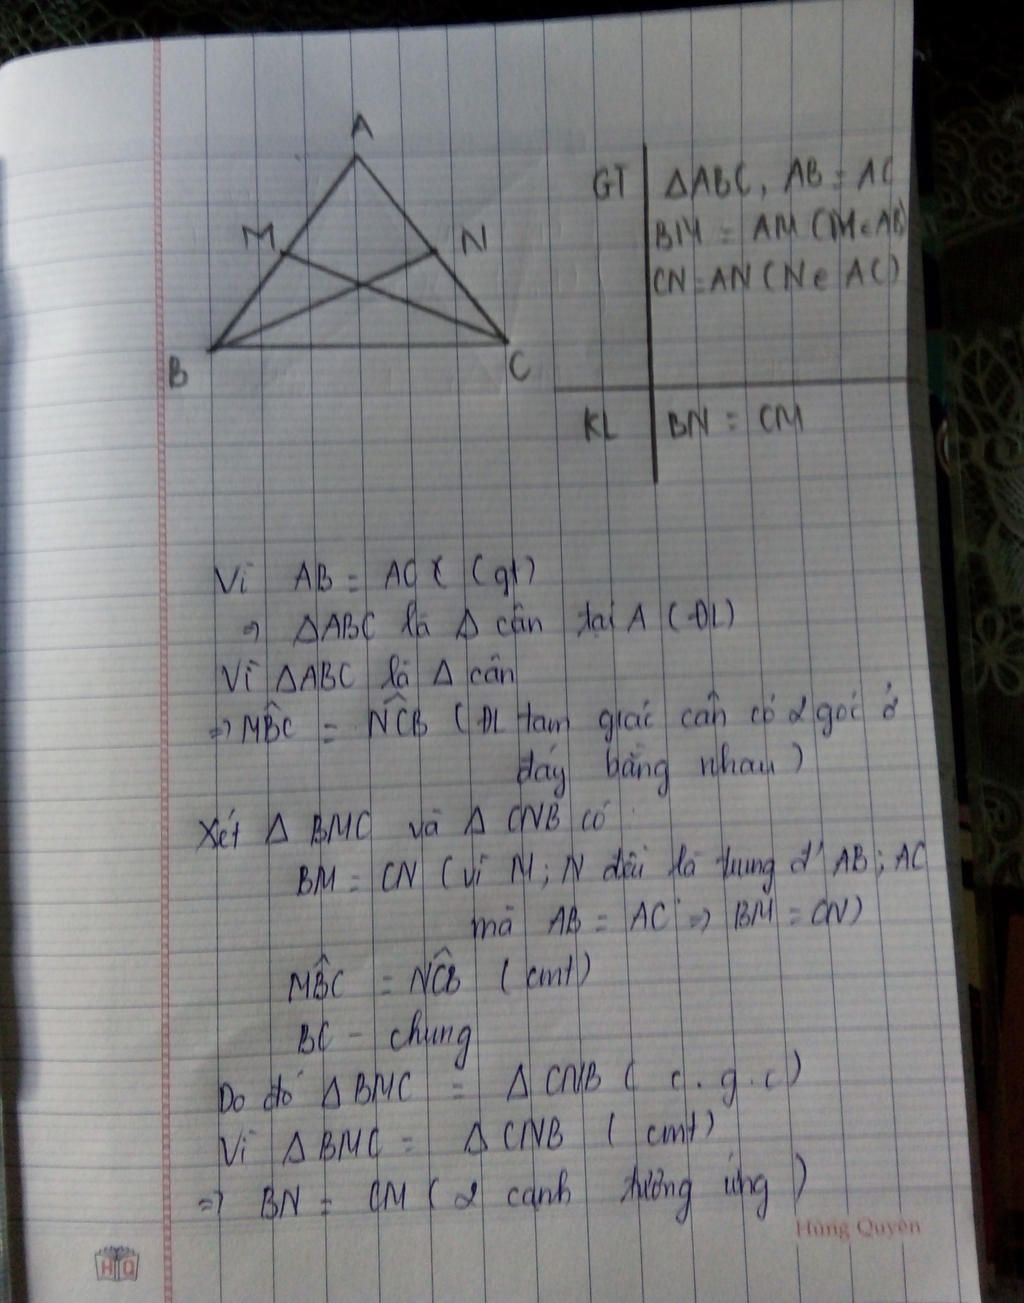 A
M
N
B
C
GT
ΔABC, AB = AC
BM = AM (M ∈ AB)
CN = AN (N ∈ AC)
KL
BN = CM
Vì AB = AC (gt)
=> ΔABC là Δ cân tại A (ĐL)
Vì ΔABC là Δ cân
=> MB̂C = NĈB (ĐL tam giác cân có 2 góc ở
đáy bằng nhau)
Xét Δ BMC và Δ CNB có
BM = CN (vì M; N đều là trung đ' AB; AC
mà AB = AC => BM = CN)
MB̂C = NĈB (cmt)
BC - chung
Do đó Δ BMC = Δ CNB (c.g.c)
Vì Δ BMC = Δ CNB (cmt)
=> BN = CM (2 cạnh tương ứng)
Hùng Quyên
HQ